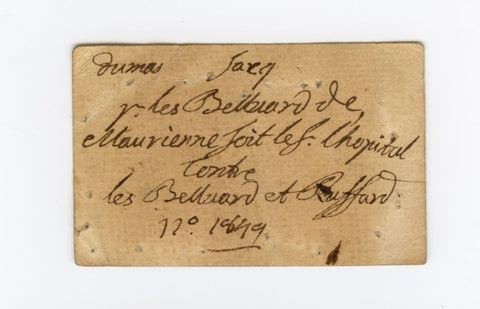 dumas Jacq
pr. les Belluard de
Maurienne soit le Sr. lhopital
Contre
les Belluard et Ruffard
n.o 1849